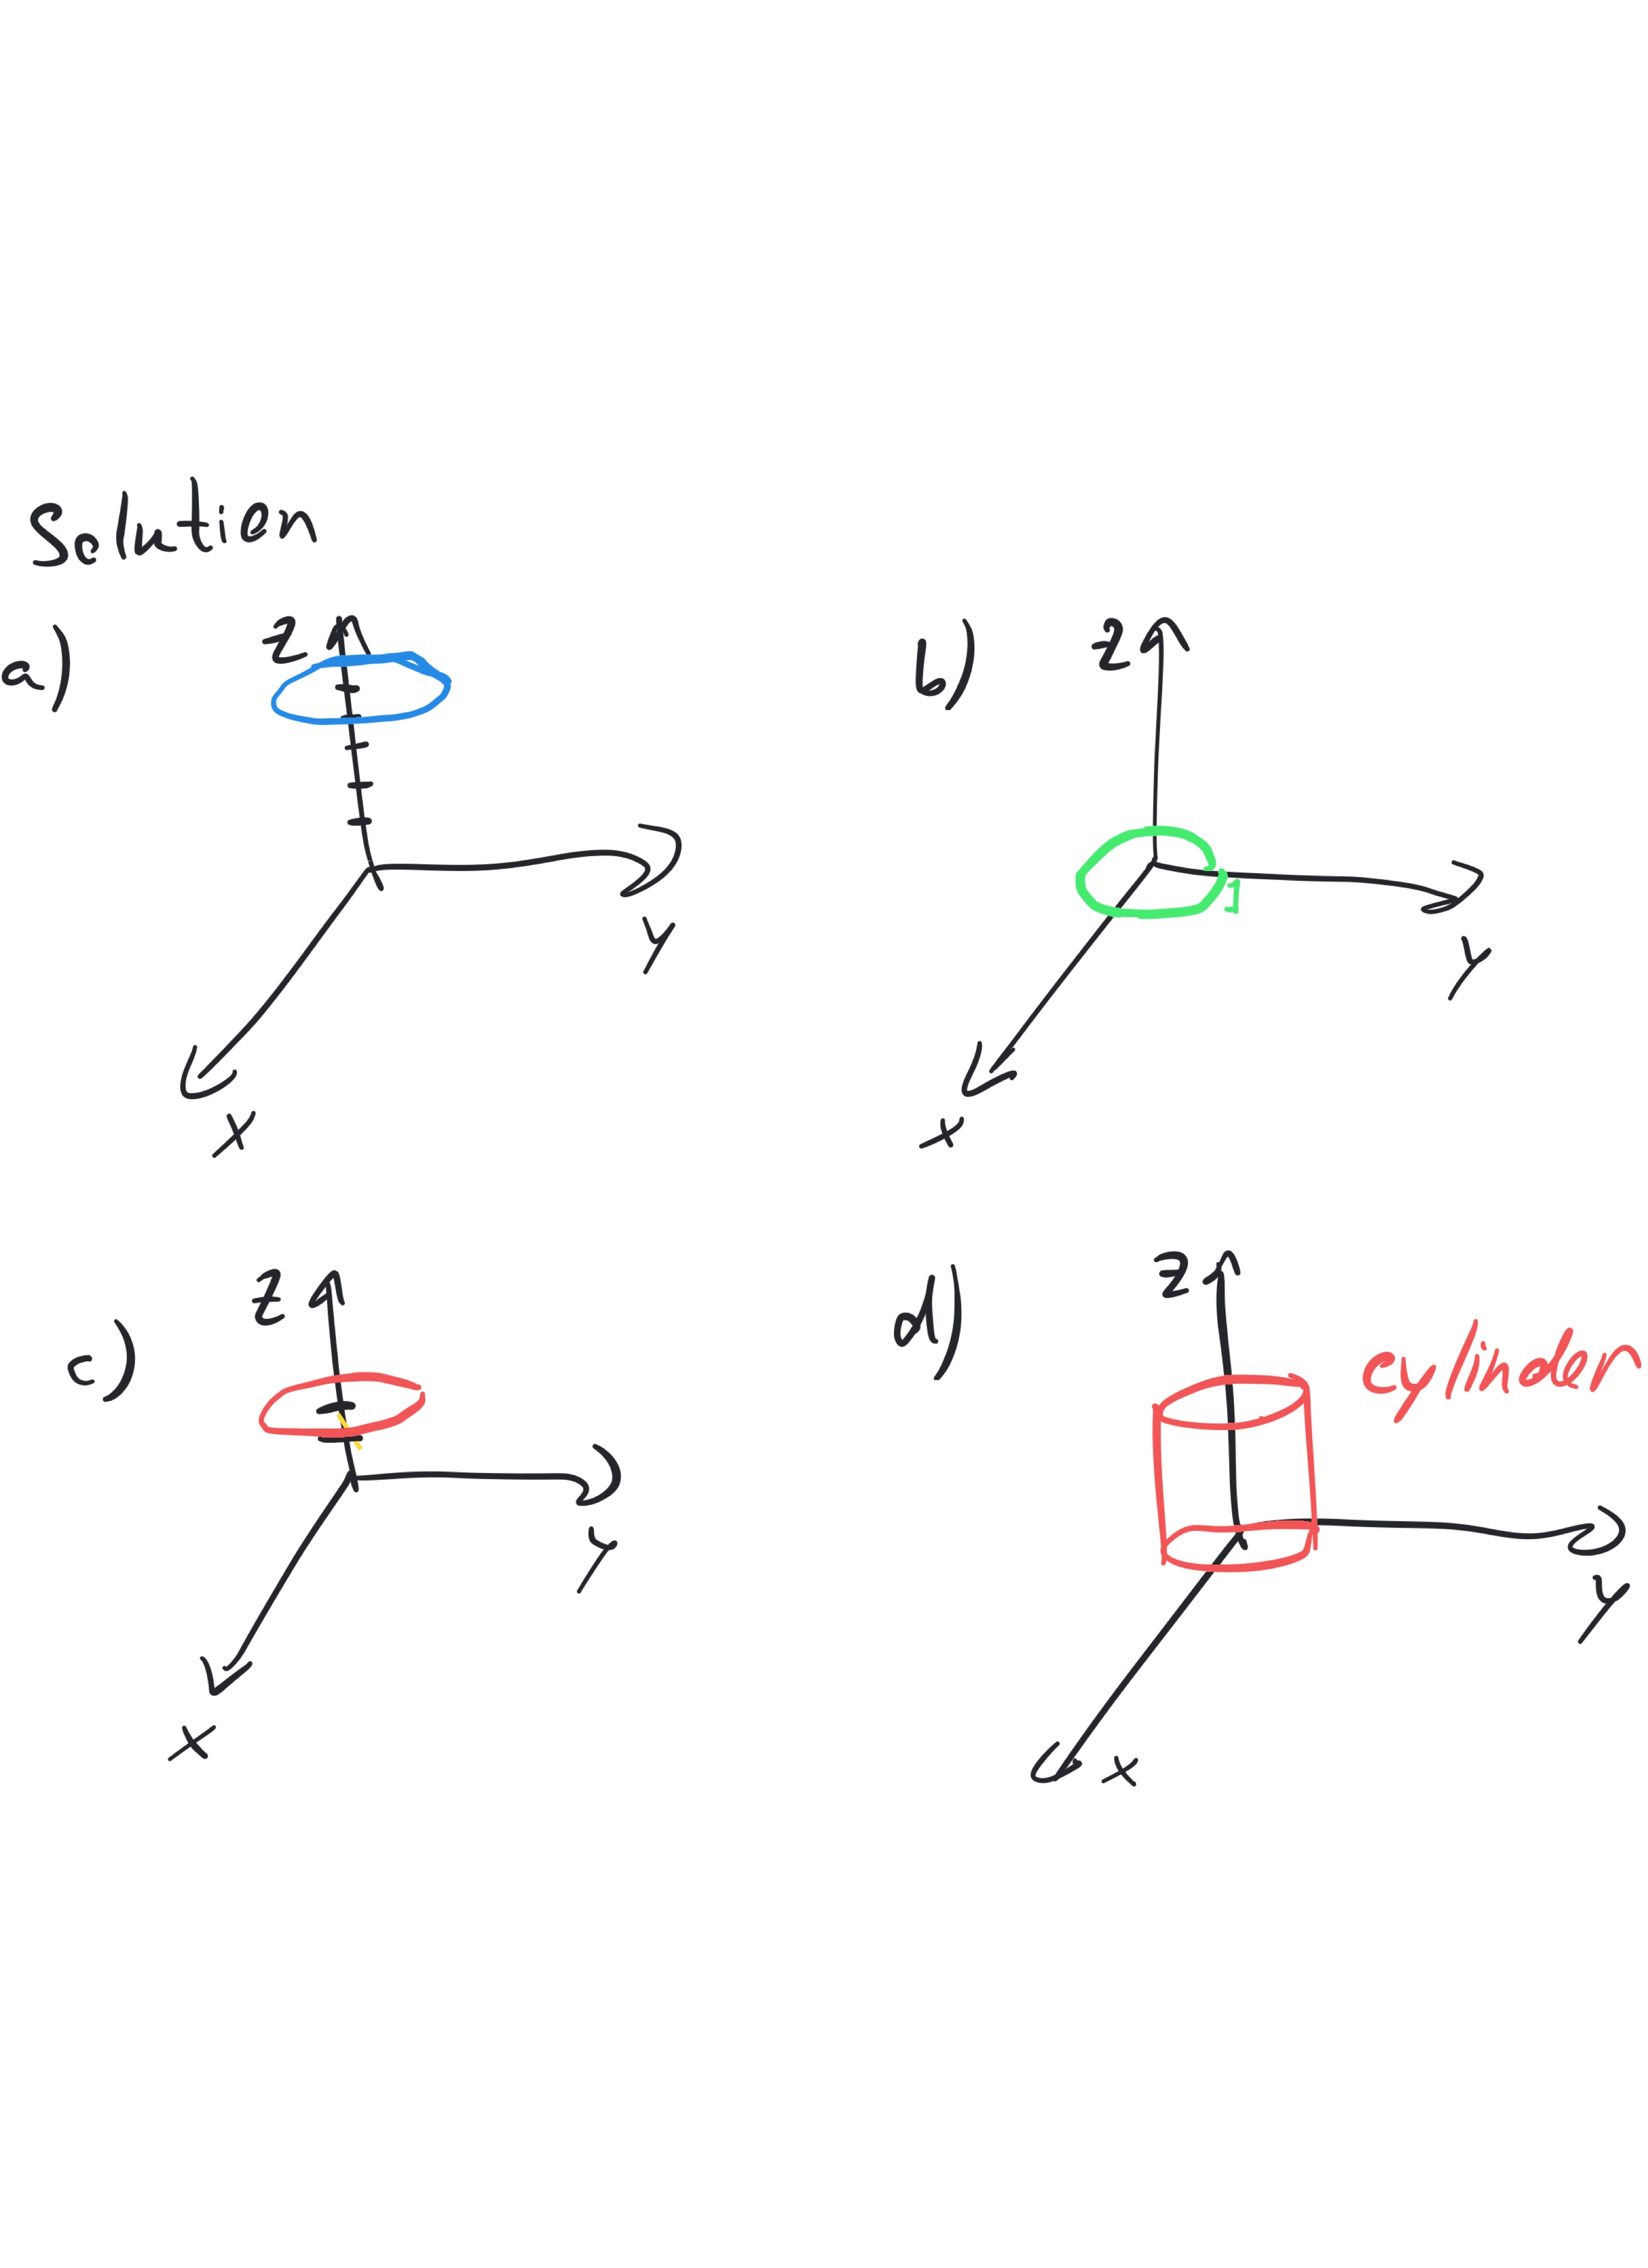 Solution
a)
z
y
x
b)
z
1
y
x
c)
z
y
x
d)
z
cylinder
y
x